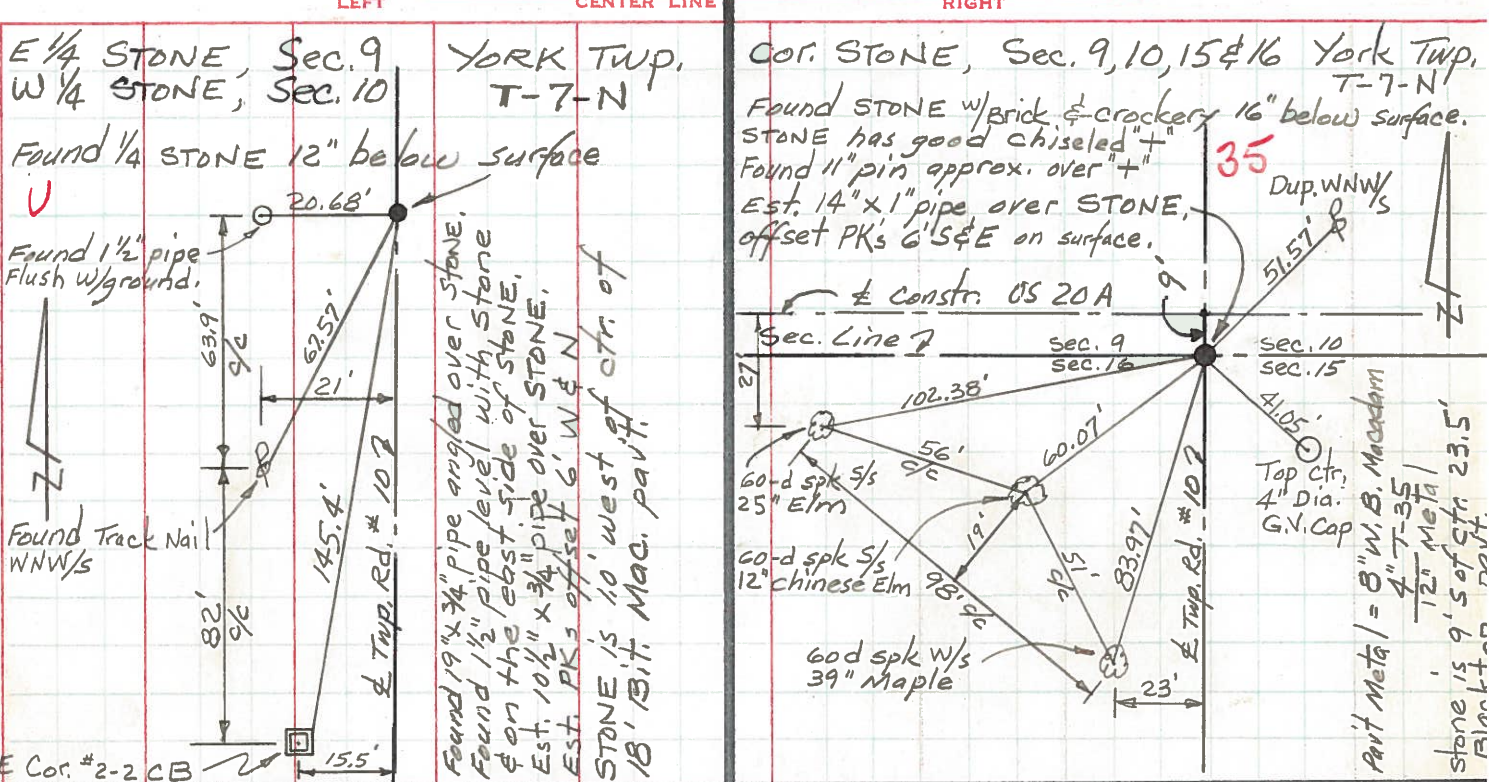 LEFT
CENTER LINE
RIGHT
E 1/4 STONE, Sec. 9
W 1/4 STONE, Sec. 10
YORK TWP.
T-7-N
Found 1/4 STONE 12" below surface
U
20.68'
Found 1 1/2" pipe
Flush w/ground.
63.9'
c/c
67.57'
21'
N
Found Track Nail
WNW/s
145.4'
82'
c/c
℄ Twp. Rd. #10
E Cor. #2-2 CB
15.5'
Found 19" x 3/4" pipe angled over STONE.
Found 1 1/2" pipe level with Stone
& on the east side of STONE.
Est. 10 1/2" x 3/4" pipe over STONE.
Est. PKs offset 6' W & N
STONE is 1.0' west of ctr. of
18' Bit. Mac. pav't.
Cor. STONE, Sec. 9, 10, 15 & 16 York Twp.
T-7-N
Found STONE w/Brick & crockery 16" below surface.
STONE has good chiseled "+"
Found 11" pin approx. over "+"
Est. 14" x 1" pipe over STONE,
offset PK's 6' S & E on surface.
35
Dup. WNW/s
51.57'
9'
℄ Constr. US 20A
N
Sec. Line
sec. 9
sec. 10
sec. 16
sec. 15
27'
102.38'
41.05'
56'
c/c
60.07'
60-d spk S/s
25" Elm
Top Ctr.
4" Dia.
G.V. Cap
19'
60-d spk S/s
12" chinese Elm
98' c/c
51'
c/c
83.97'
℄ Twp. Rd. #10
60 d spk W/s
39" Maple
23'
Pav't Metal = 8" W.B. Macadam
4" T-35
12" Metal
stone is 9' S of ctr. 23.5'
Blacktop pav't.